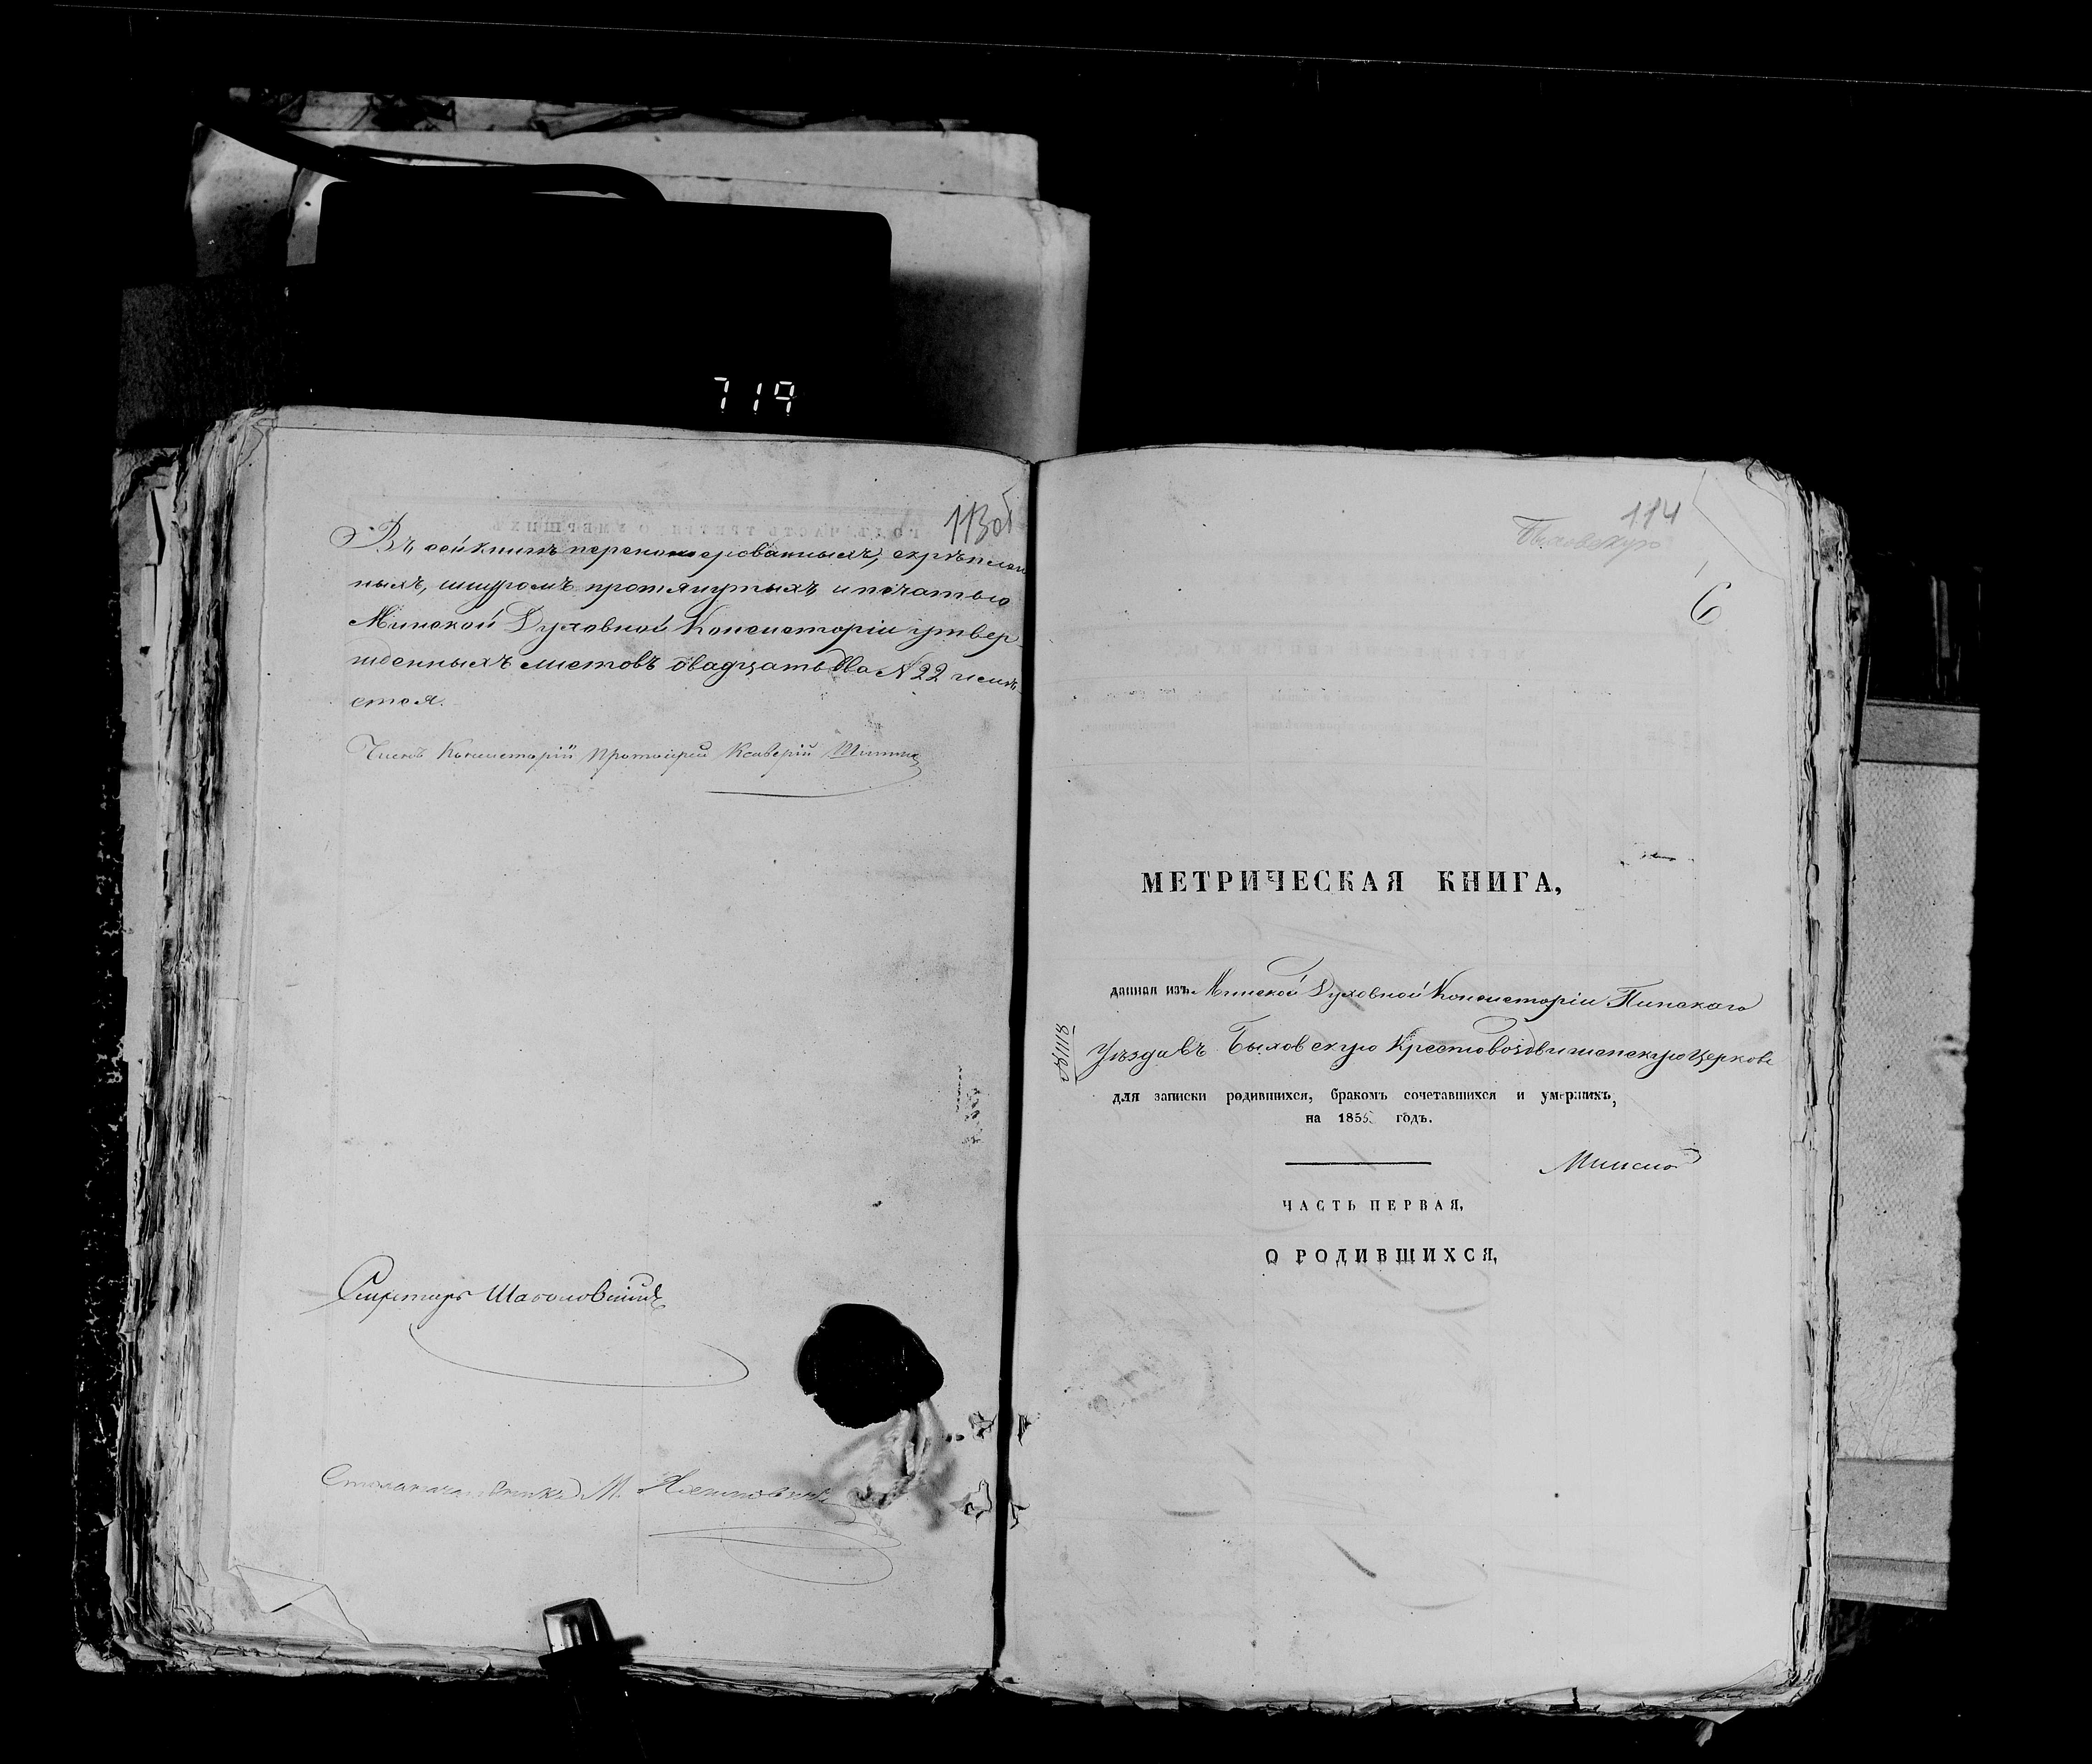 719
113об
Въ сей книгѣ перенумерованныхъ, скрѣплен
ныхъ, шнуромъ протянутыхъ и печатью
Минской Духовной Консисторіи утвер
жденныхъ листовъ двадцать два №22 числит
ется.
Членъ Консисторіи Протоіерей Ксаверій
Секретарь
Столоначальникъ М.
114
Быховскую
6
МЕТРИЧЕСКАЯ КНИГА,
данная изъ Минской Духовной Консисторіи Пинскаго
Уѣзда въ Быховскую Крестовоздвиженскую Церковь
для записки родившихся, бракомъ сочетавшихся и умершихъ,
на 1855 годъ.
ЧАСТЬ ПЕРВАЯ,
О РОДИВШИХСЯ,